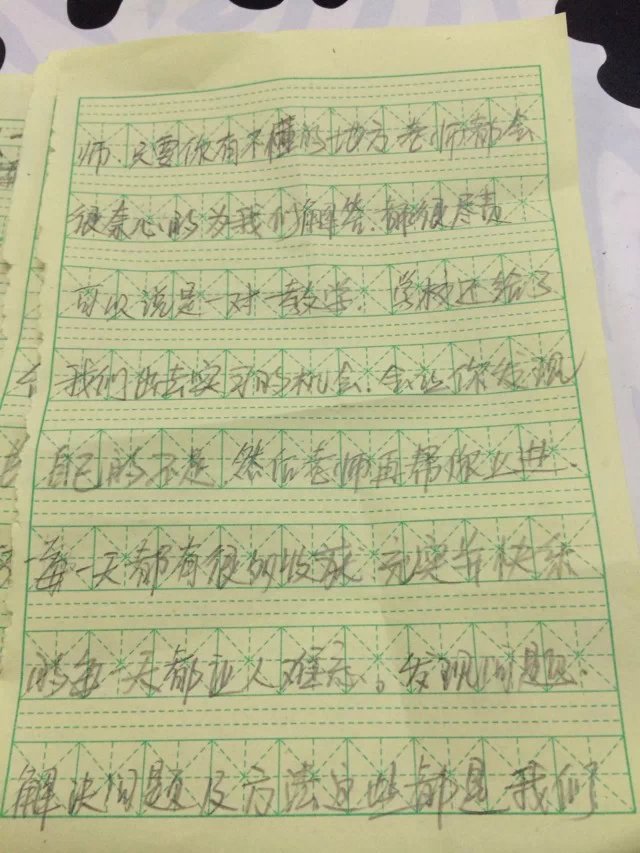 师、只要你有不懂的地方老师都会
很奈心的为我们解答、都很尽责
可以说是一对一教学、学校还给了
我们出去实习的机会、会让你发现
自己的不足 然后老师再帮你改进、
每一天都有很多收获 充实并快乐
的每一天都让人难忘。发现问题、
解决问题及方法这些都是我们